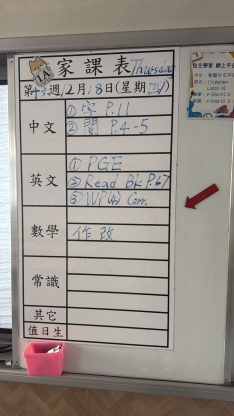 1A 家課表 Thursday
第十六週12月18日(星期四)
中文 ① 字 P.11
② 閱 P.4-5
英文 ① PGE
② Read Bk P.67
③ WP(4) Corr.
數學 作改
常識
其它
值日生